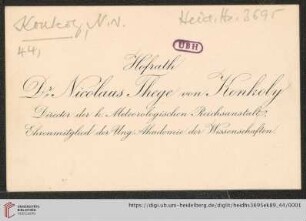 Konkoly, N. v.
Heid. Hs. 3695
44,
UBH
Hofrath
Dr. Nicolaus Thege von Konkoly
Director der k. Meteorologischen Reichsanstalt,
Ehrenmitglied der Ung. Akademie der Wissenschaften.
UNIVERSITÄTS-
BIBLIOTHEK
HEIDELBERG
https://digi.ub.uni-heidelberg.de/diglit/heidhs3695ek89_44/0001